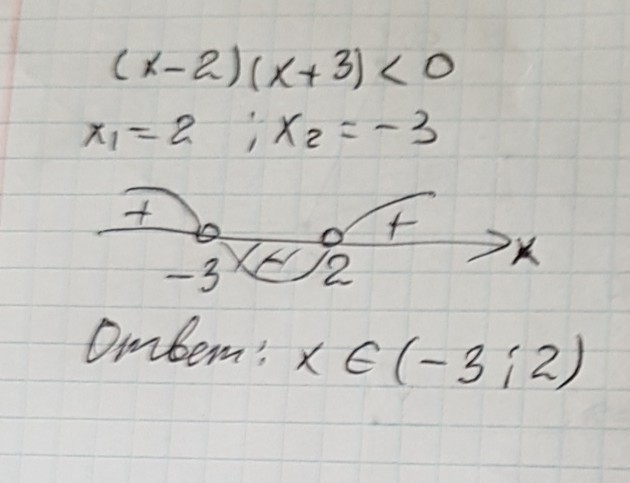 (x-2)(x+3)<0
x₁=2 ; x₂=-3
+ - +
-3 2 x
Ответ: x ∈ (-3;2)